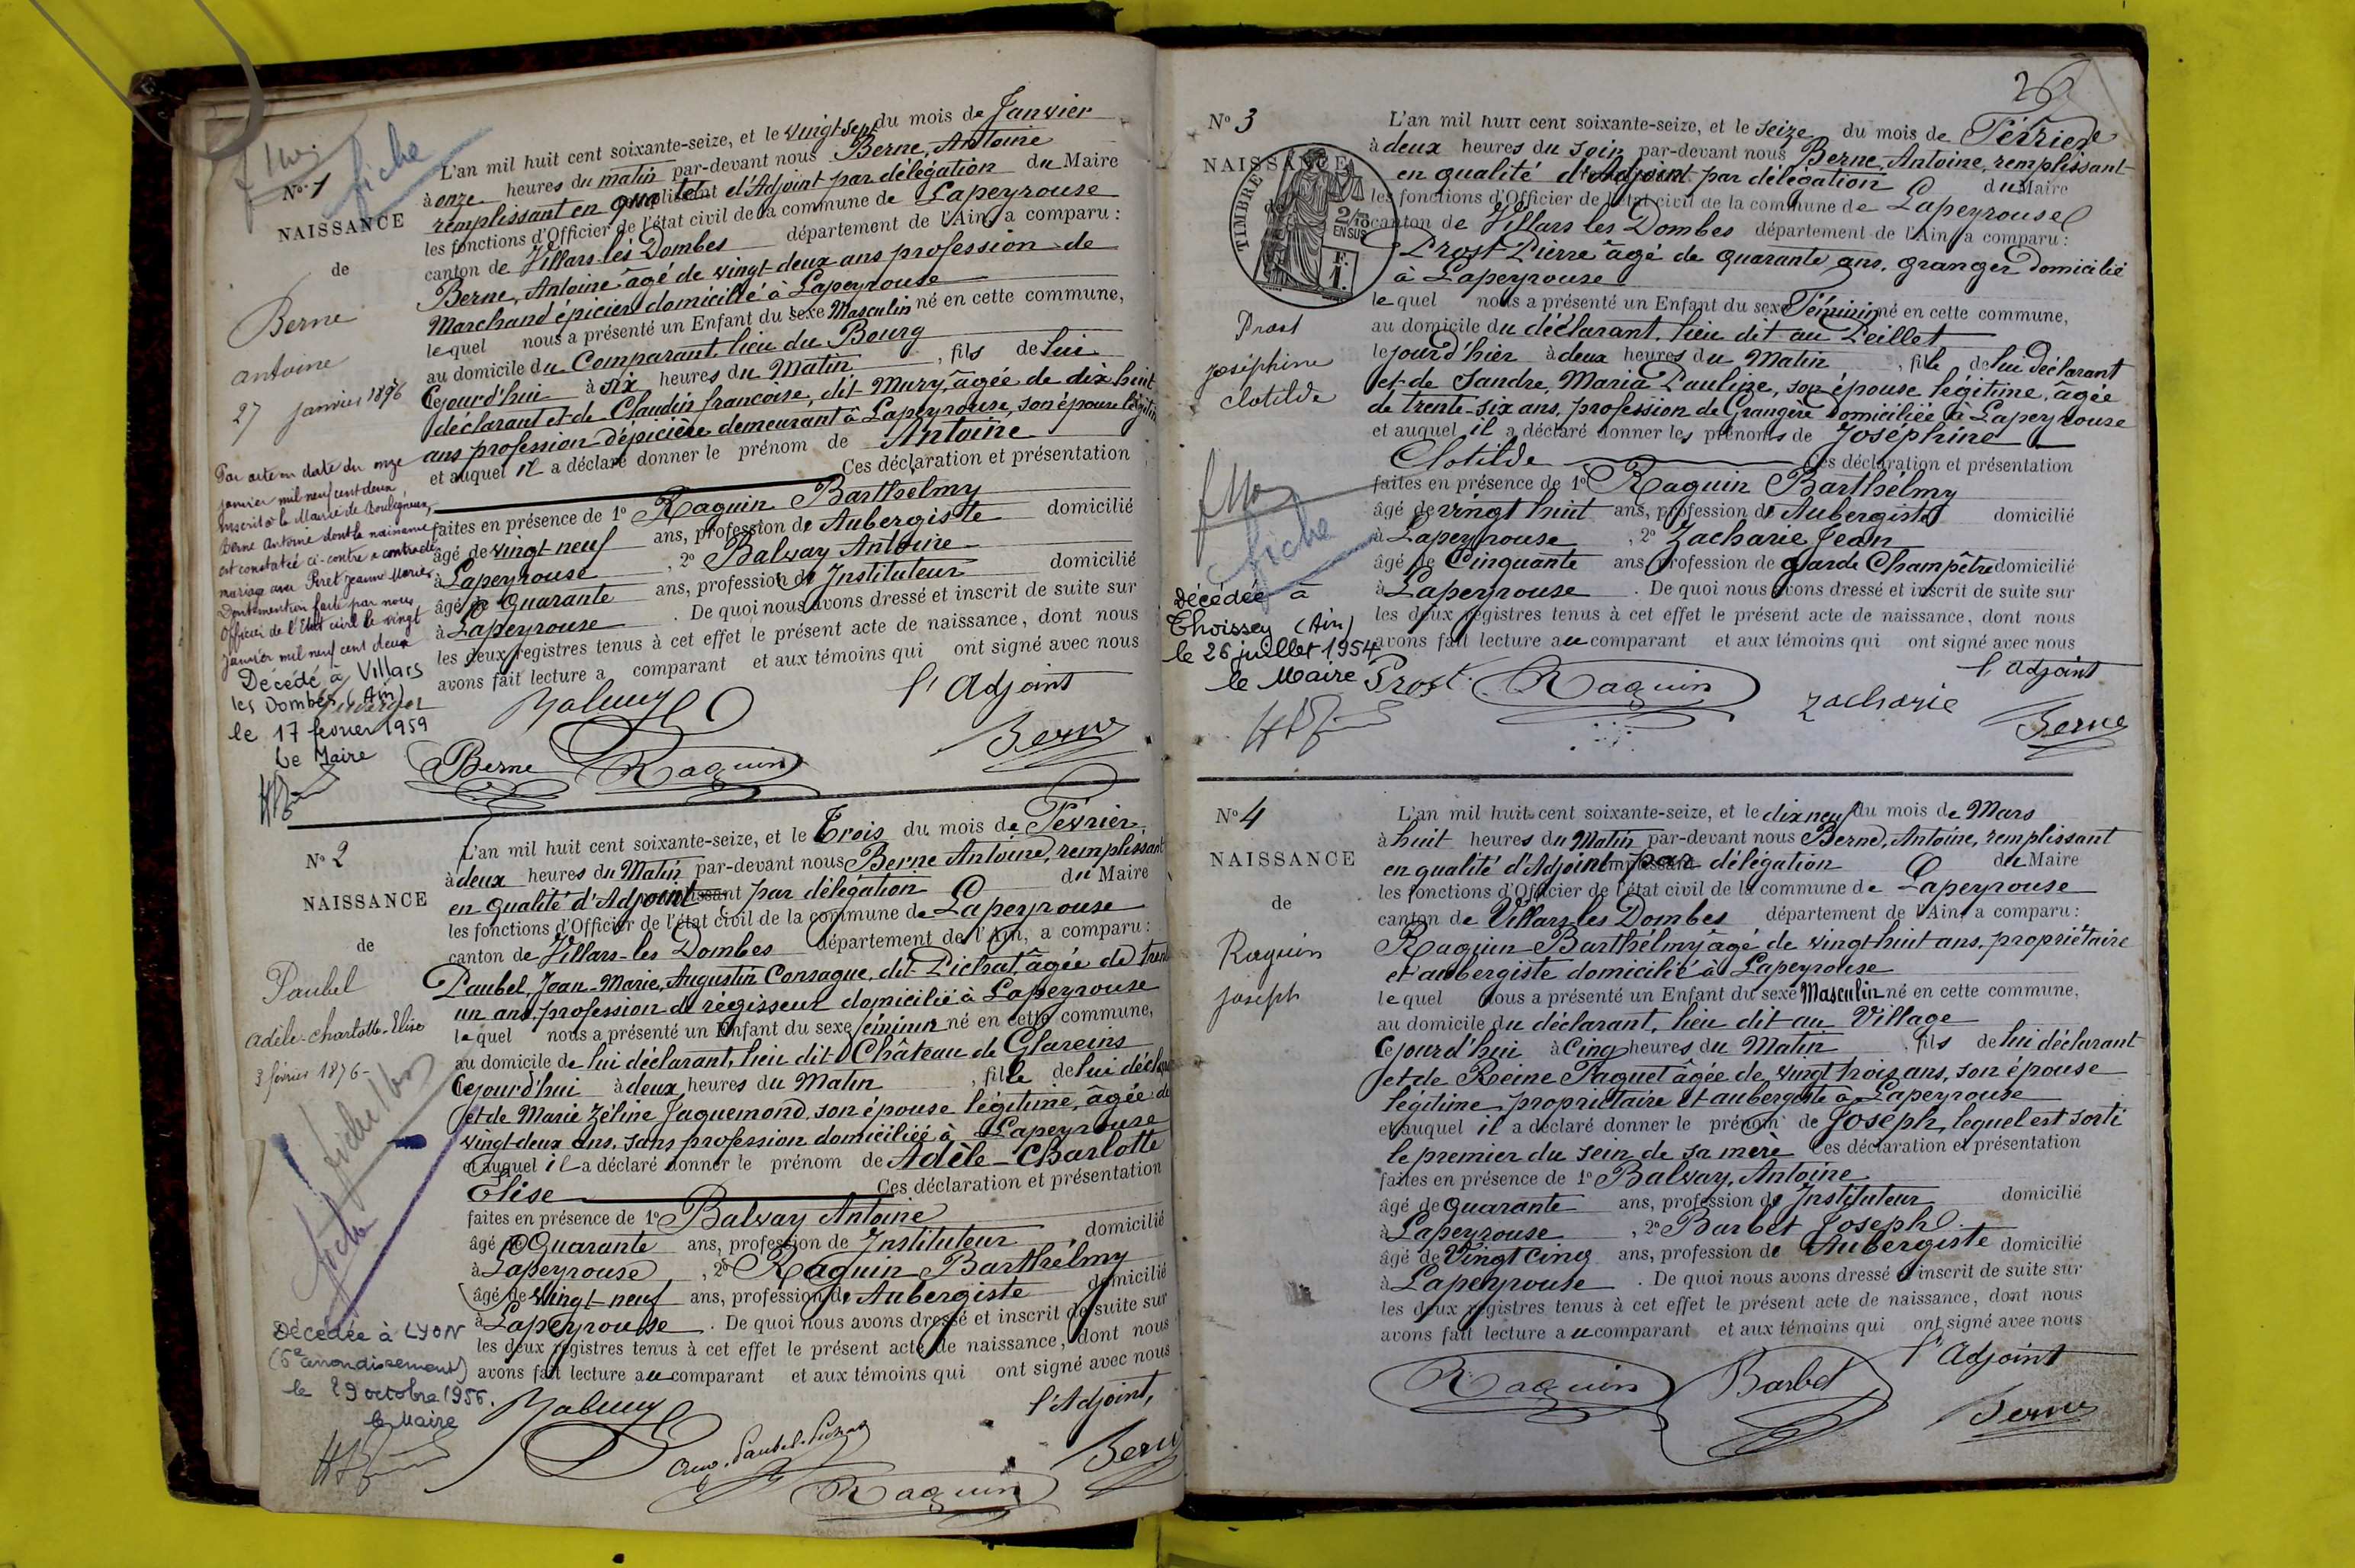 N° 1
NAISSANCE
de
Berne
Antoine
27 janvier 1876
fiche
L'an mil huit cent soixante-seize, et le vingt-sept du mois de Janvier
à onze heures du matin par-devant nous Berne, Antoine
remplissant en qualité d'Adjoint par délégation du Maire
les fonctions d'Officier de l'état civil de la commune de Lapeyrouse
canton de Villars-les Dombes département de l'Ain, a comparu :
Berne, Antoine âgé de vingt-deux ans profession de
Marchand épicier domicilié à Lapeyrouse
lequel nous a présenté un Enfant du sexe Masculin né en cette commune,
au domicile du Comparant, lieu du Bourg
Cejourd'hui à six heures du Matin, fils de lui
déclarant et de Claudin francoise, dit Mury, âgée de dix huit
ans profession d'épicière demeurant à Lapeyrouse, son épouse légitime
et auquel il a déclaré donner le prénom de Antoine
Ces déclaration et présentation
faites en présence de 1° Raguin Barthélmy
âgé de vingt-neuf ans, profession de Aubergiste domicilié
à Lapeyrouse, 2° Balvay Antoine
âgé de Quarante ans, profession de Instituteur domicilié
à Lapeyrouse. De quoi nous avons dressé et inscrit de suite sur
les deux registres tenus à cet effet le présent acte de naissance, dont nous
avons fait lecture a comparant et aux témoins qui ont signé avec nous
l'Adjoint
Balvay
Berne Raguin Berne
Par acte en date du onze
janvier mil neuf cent deux
inscrit à la Mairie de Bouligneux,
Berne Antoine dont la naissance
est constatée ci-contre a contracté
mariage avec Péret Jeanne Marie.
Dont mention faite par nous
Officier de l'Etat civil le vingt
janvier mil neuf cent deux
Décédé à Villars
les Dombes (Ain)
le 17 fevrier 1959
Le Maire
N° 2
NAISSANCE
de
Paubel
Adèle-Charlotte-Elise
3 février 1876-
fiche
L'an mil huit cent soixante-seize, et le Trois du mois de Février
à deux heures du Matin par-devant nous Berne Antoine, remplissant
en qualité d'Adjoint par délégation du Maire
les fonctions d'Officier de l'état civil de la commune de Lapeyrouse
canton de Villars-les Dombes département de l'Ain, a comparu :
Paubel, Jean-Marie, Augustin Consague, dit Pichat, âgée de trente
un ans, profession de régisseur domicilié à Lapeyrouse
lequel nous a présenté un Enfant du sexe féminin né en cette commune,
au domicile de lui déclarant, lieu dit Château de Glareins
Cejourd'hui à deux heures du Matin, fille de lui déclarant
et de Marie Zéline Jaquemond, son épouse légitime, âgée de
vingt-deux ans, sans profession domiciliée à Lapeyrouse
et auquel il a déclaré donner le prénom de Adèle-Charlotte
Elise Ces déclaration et présentation
faites en présence de 1° Balvay Antoine
âgé de Quarante ans, profession de Instituteur, domicilié
à Lapeyrouse, 2° Raguin Barthélmy
âgé de vingt-neuf ans, profession de Aubergiste domicilié
à Lapeyrouse. De quoi nous avons dressé et inscrit de suite sur
les deux registres tenus à cet effet le présent acte de naissance, dont nous
avons fait lecture au comparant et aux témoins qui ont signé avec nous
l'Adjoint,
Balvay
Raguin Berne
Décédée à LYON
(6e arrondissement)
le 29 octobre 1956.
le Maire
26
N° 3
NAISSANCE
de
TIMBRE
2/10 EN SUS
F. 1.
Prost
joséphine
clotilde
fiche
L'an mil huit cent soixante-seize, et le seize du mois de Février
à deux heures du soir par-devant nous Berne, Antoine, remplissant
en qualité d'Adjoint par délégation du Maire
les fonctions d'Officier de l'état civil de la commune de Lapeyrouse
canton de Villars les Dombes département de l'Ain, a comparu :
Prost Pierre âgé de quarante ans, granger domicilié
à Lapeyrouse
lequel nous a présenté un Enfant du sexe Féminin né en cette commune,
au domicile du déclarant, lieu dit au Peillet
lejourd'hier à deux heures du Matin, fille de lui déclarant
et de Sandre, Maria Pauline, son épouse légitime, âgée
de trente-six ans, profession de Grangère domiciliée à Lapeyrouse
et auquel il a déclaré donner les prénoms de Joséphine
Clotilde Ces déclaration et présentation
faites en présence de 1° Raguin Barthélmy
âgé de vingt huit ans, profession de Aubergiste domicilié
à Lapeyrouse, 2° Zacharie Jean
âgé de Cinquante ans profession de garde Champêtre domicilié
à Lapeyrouse. De quoi nous avons dressé et inscrit de suite sur
les deux registres tenus à cet effet le présent acte de naissance, dont nous
avons fait lecture au comparant et aux témoins qui ont signé avec nous
l'adjoint
Prost Raguin Zacharie Berne
Décédée à
Thoissey (Ain)
le 26 juillet 1954
le Maire
N° 4
NAISSANCE
de
Raguin
joseph
L'an mil huit cent soixante-seize, et le dix neuf du mois de Mars
à huit heures du Matin par-devant nous Berne, Antoine, remplissant
en qualité d'Adjoint par délégation du Maire
les fonctions d'Officier de l'état civil de la commune de Lapeyrouse
canton de Villars les Dombes département de l'Ain, a comparu :
Raguin Barthélmy âgé de vingt-huit ans, propriétaire
et aubergiste domicilié à Lapeyrouse
lequel nous a présenté un Enfant du sexe Masculin né en cette commune,
au domicile du déclarant, lieu dit au Village
Cejourd'hui à Cinq heures du Matin, fils de lui déclarant
et de Reine Paquet âgée de vingt trois ans, son épouse
légitime, propriétaire et aubergiste à Lapeyrouse
et auquel il a déclaré donner le prénom de Joseph, lequel est sorti
le premier du sein de sa mère Ces déclaration et présentation
faites en présence de 1° Balvay, Antoine
âgé de Quarante ans, profession de Instituteur domicilié
à Lapeyrouse, 2° Barbet Joseph
âgé de Vingt cinq ans, profession de Aubergiste domicilié
à Lapeyrouse. De quoi nous avons dressé et inscrit de suite sur
les deux registres tenus à cet effet le présent acte de naissance, dont nous
avons fait lecture au comparant et aux témoins qui ont signé avec nous
l'Adjoint
Raguin Barbet Berne